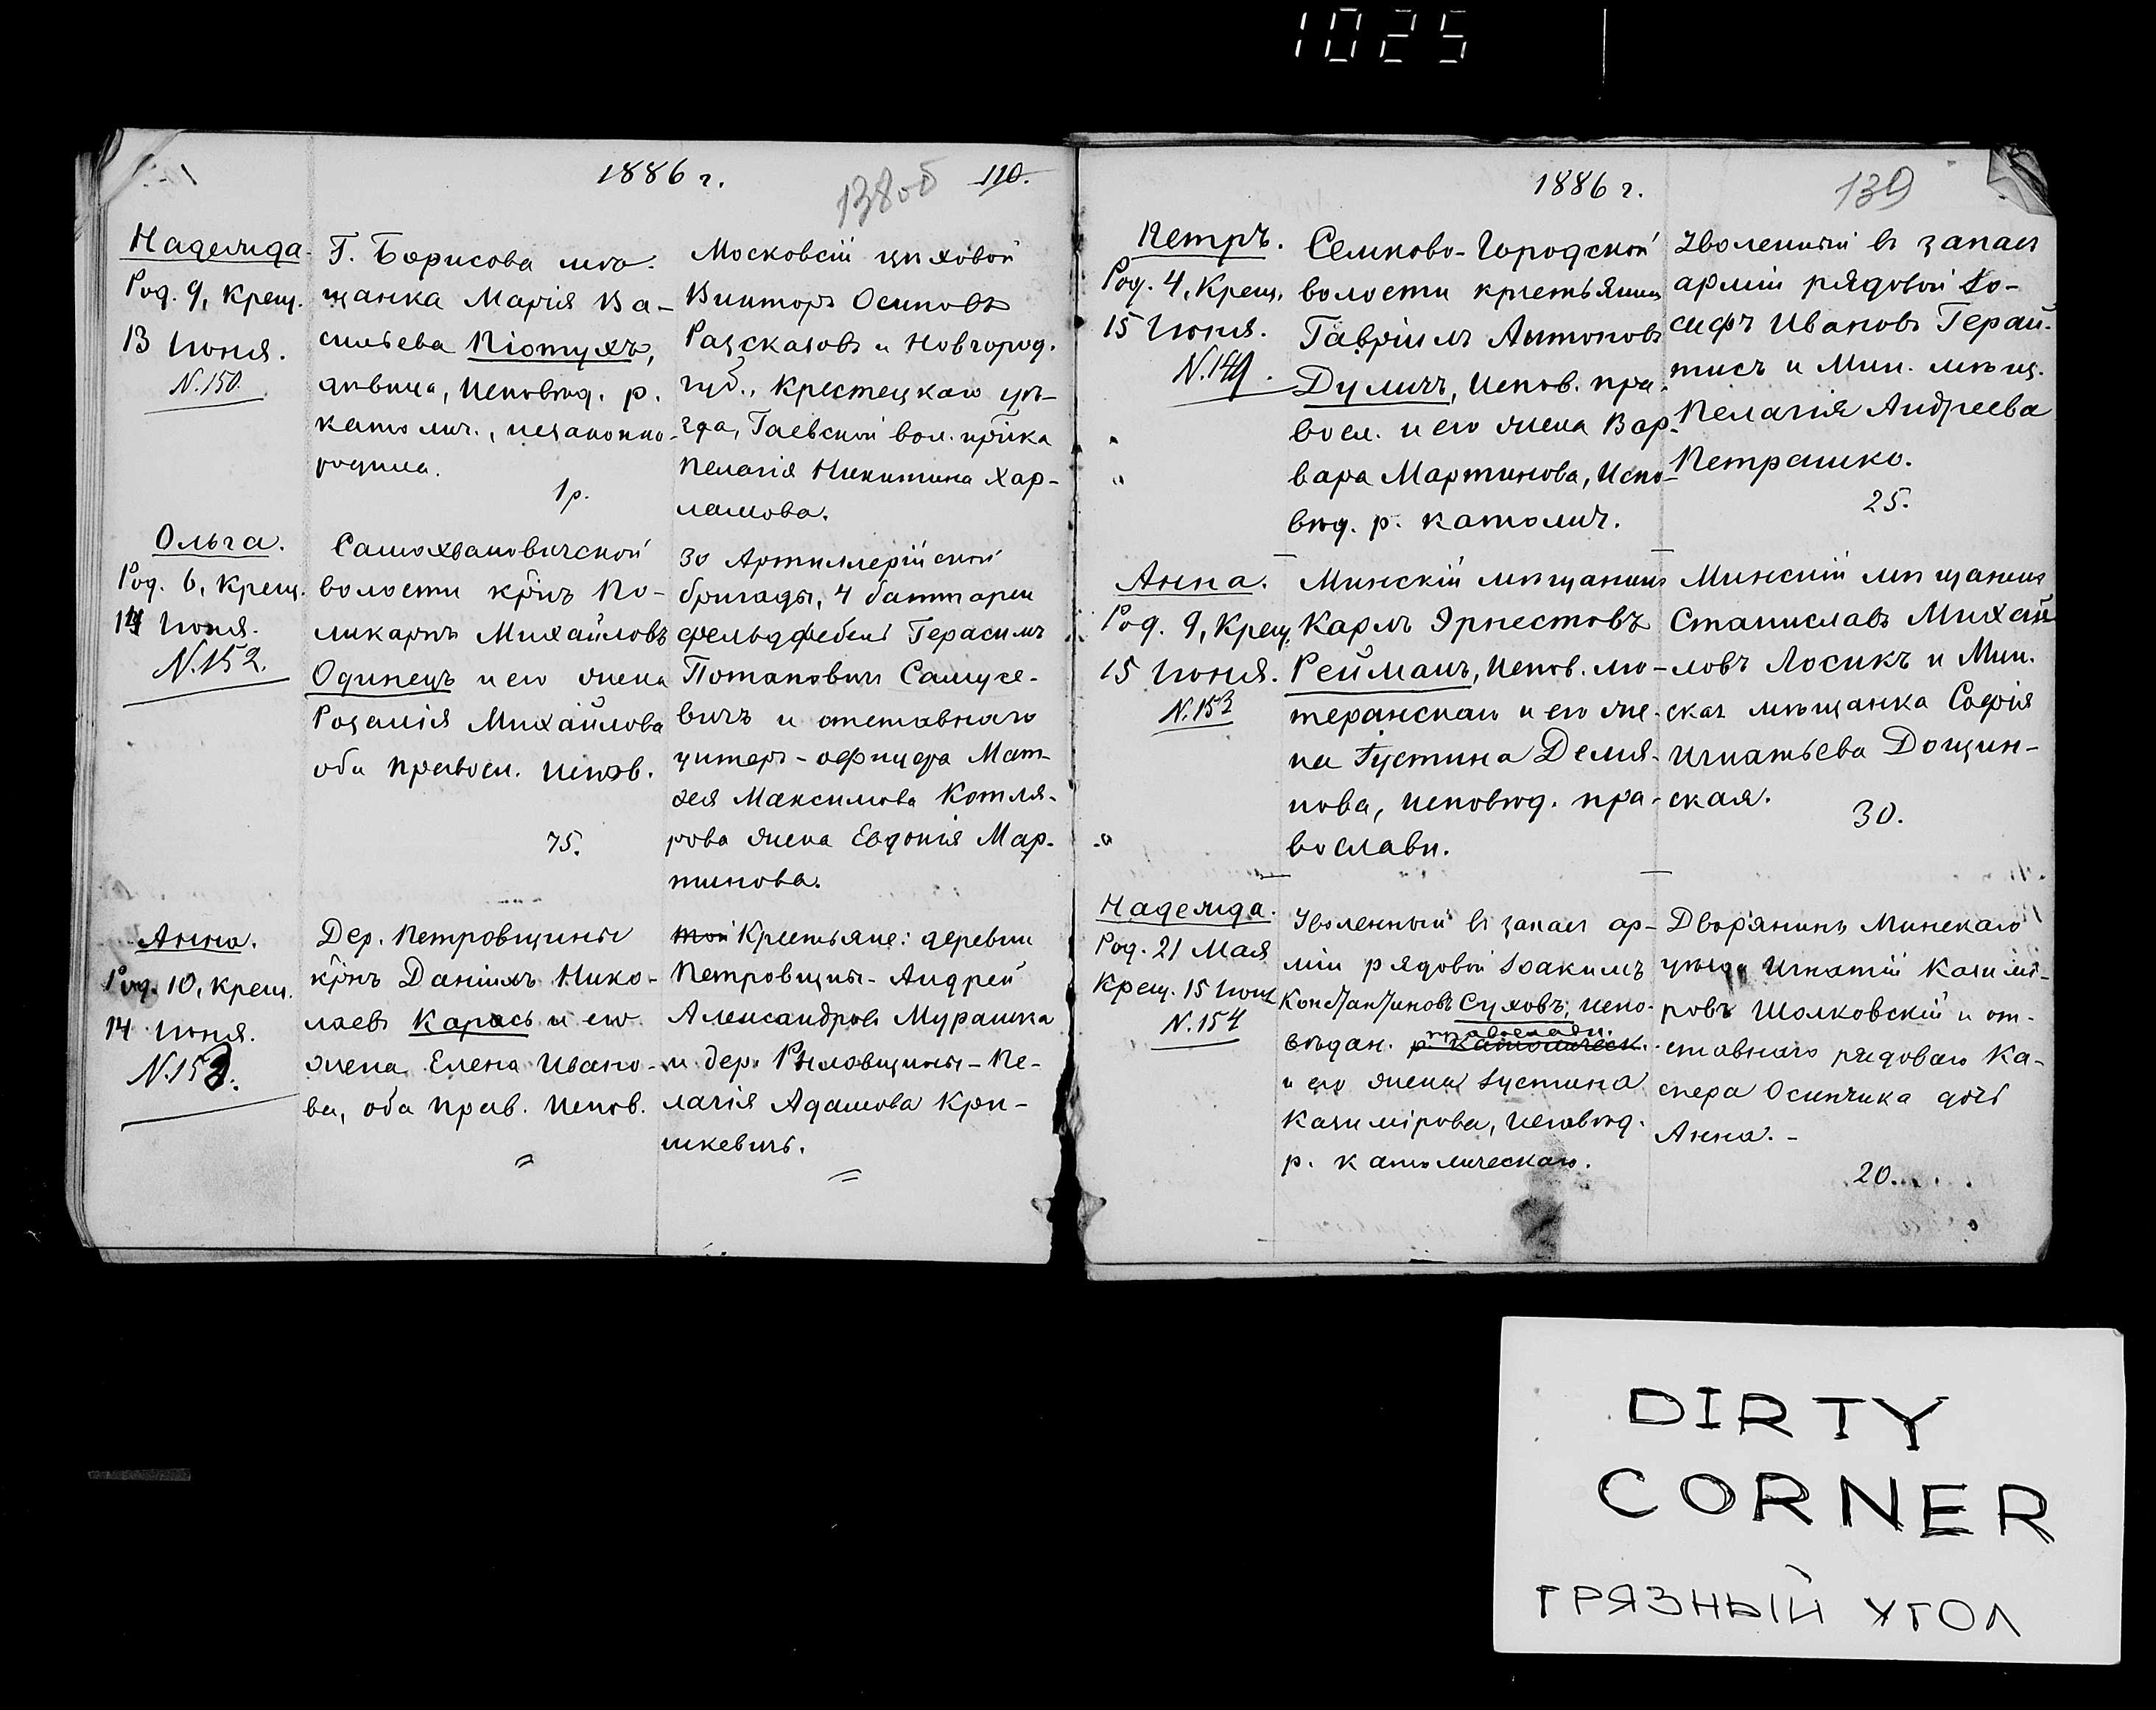 1025
1886 г.
138об
110.
Надежда.
Род. 9, Крещ.
13 Июня.
N. 150.
Г. Борисова мѣ-
щанка Марія Ва-
сильева Пѣтухъ,
дѣвица, исповѣд. р.
католич., незаконно-
родила.
1 р.
Московскій цеховой
Викторъ Осиповъ
Разсказовъ и Новгород.
губ., Крестецкаго уѣ-
зда, Гаевской вол. кр̃нка
Пелагія Никитина Хар-
ламова.
Ольга.
Род. 6, Крещ.
14 Июня.
N. 152.
Самохваловичской
волости кр̃нъ По-
ликарпъ Михайловъ
Одинецъ и его жена
Розалія Михайлова
оба правосл. испов.
75.
30 Артиллерійской
бригады, 4 баттареи
фельдфебель Герасимъ
Потаповичъ Самусе-
вичъ и отставнаго
унтеръ-офицера Мат-
ѳея Максимова Котля-
рова жена Евдокія Мар-
тинова.
Анна.
Род. 10, Крещ.
14 Июня.
N. 153.
Дер. Петровщины
кр̃нъ Даніилъ Нико-
лаевъ Карась и его
жена Елена Ивано-
ва, оба прав. испов.
Крестьяне: деревни
Петровщины - Андрей
Александровъ Мурашка
и дер. Рыловщины - Пе-
лагія Адамова Кри-
шкевичъ.
1886 г.
139
Петръ.
Род. 4, Крещ.
15 Июня.
N. 149.
Семково-Городской
волости крестьянинъ
Гавріилъ Антоновъ
Дуличъ, испов. пра-
восл. и его жена Вар-
вара Мартинова, испо-
вѣд. р. католич.
Уволенный въ запасъ
арміи рядовой Іо-
сифъ Ивановъ Герай-
тисъ и Мин. мѣщ.
Пелагія Андреева
Петрашко.
25.
Анна.
Род. 9, Крещ.
15 Июня.
N. 153
Минскій мѣщанинъ
Карлъ Эрнестовъ
Рейманъ, испов. лю-
теранскаго и его же-
на Іустина Демья-
нова, исповѣд. пра-
вославн.
Минскій мѣщанинъ
Станиславъ Михай-
ловъ Лосикъ и Мин-
ская мѣщанка Софія
Игнатьева Дощин-
ская.
30.
Надежда.
Род. 21 Мая
Крещ. 15 Июня
N. 154
Уволенный въ запасъ ар-
міи рядовой Іоакимъ
Константиновъ Суховъ, испо-
православн.
вѣдан. р. католическ.
и его жена Іустина
Казимірова, исповѣд.
р. католическаго.
Дворянинъ Минскаго
уѣзда Игнатій Казимі-
ровъ Шолковскій и от-
ставнаго рядоваго Ка-
спера Осипчика дочь
Анна. -
20.
DIRTY
CORNER
ГРЯЗНЫЙ УГОЛ